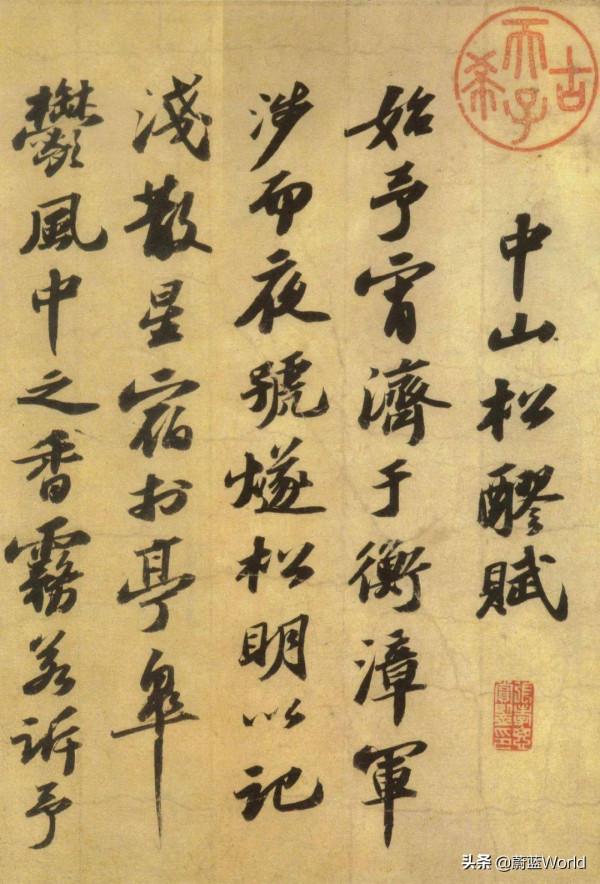 古希天子
中山松醪賦
始予宵濟于衡漳軍
涉而夜號燧松明以記
淺散星宿於亭皋
鬱風中之香霧若訴予
头条 @蔚蓝World